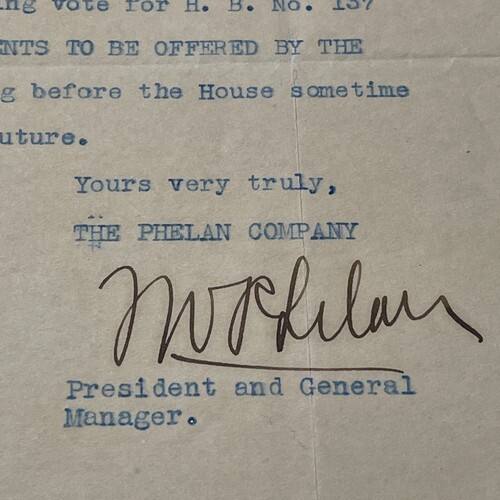 ng vote for H. B. No. 137
ENTS TO BE OFFERED BY THE
g before the House sometime
uture.
Yours very truly,
THE PHELAN COMPANY
M W Phelan
President and General
Manager.